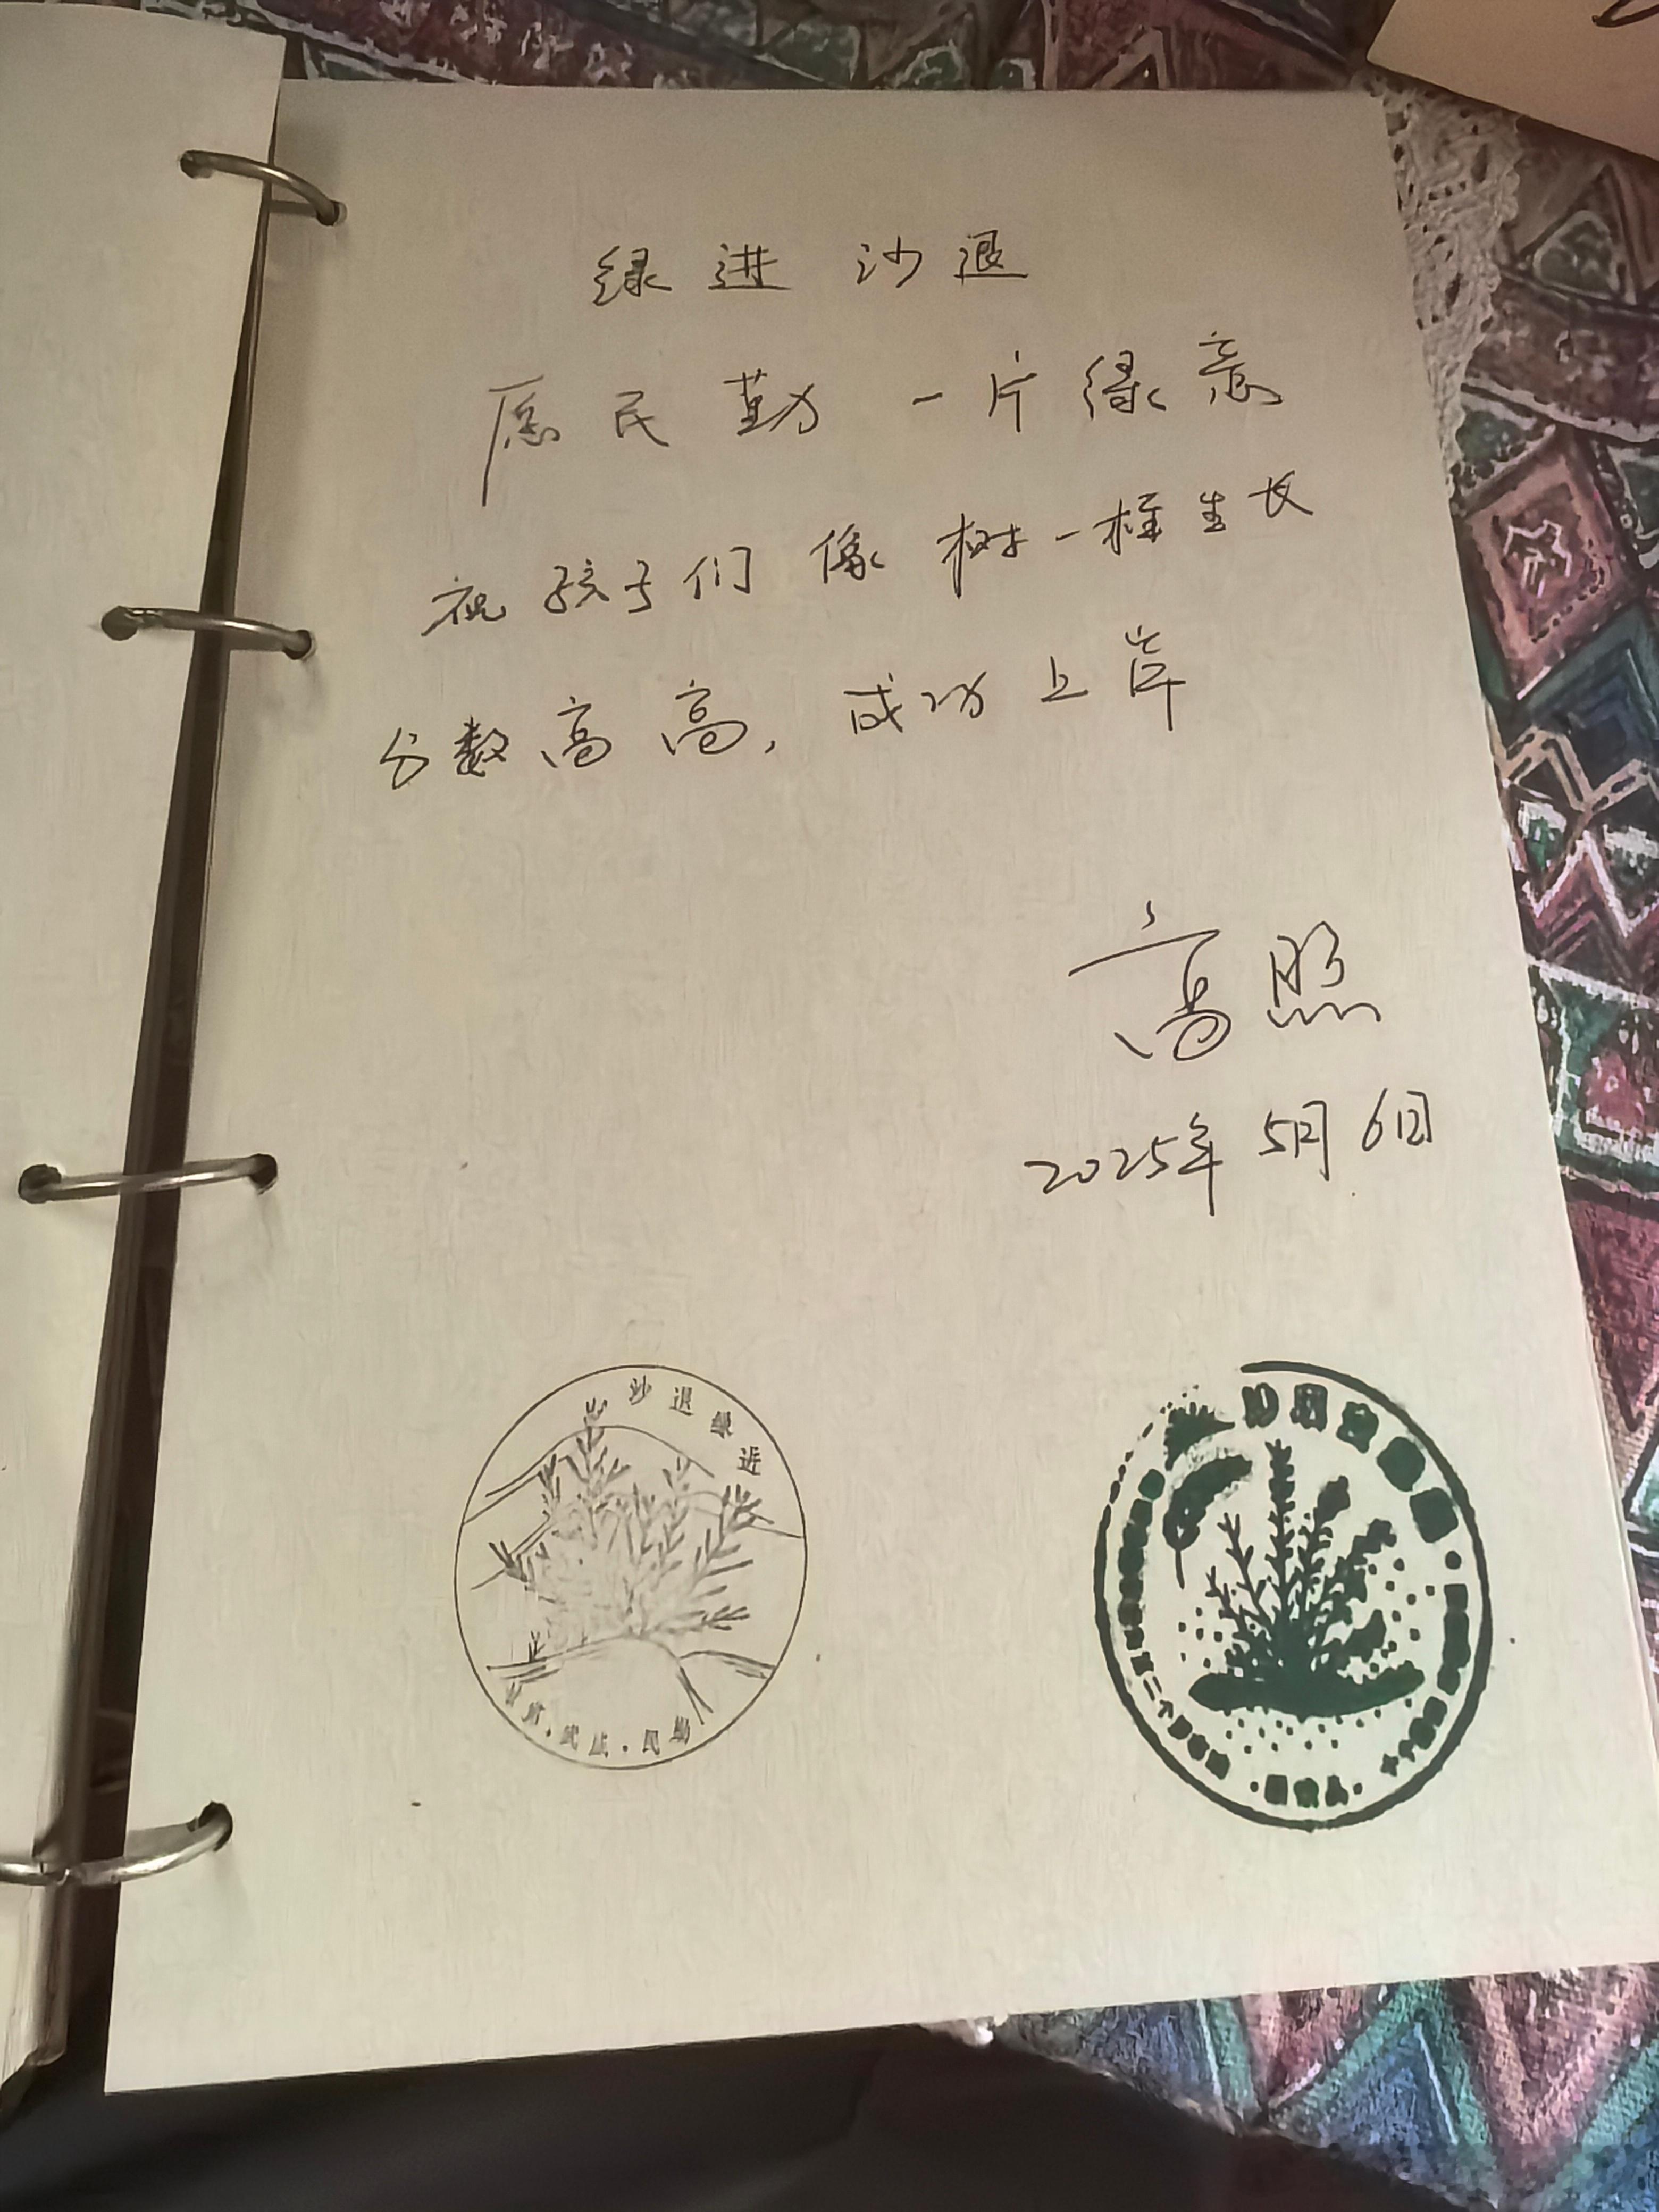 绿进沙退
愿民勤一片绿意
祝孩子们像树一样生长
分数高高,成功上岸
高照
2025年5月6日
沙退绿进
甘肃·武威·民勤